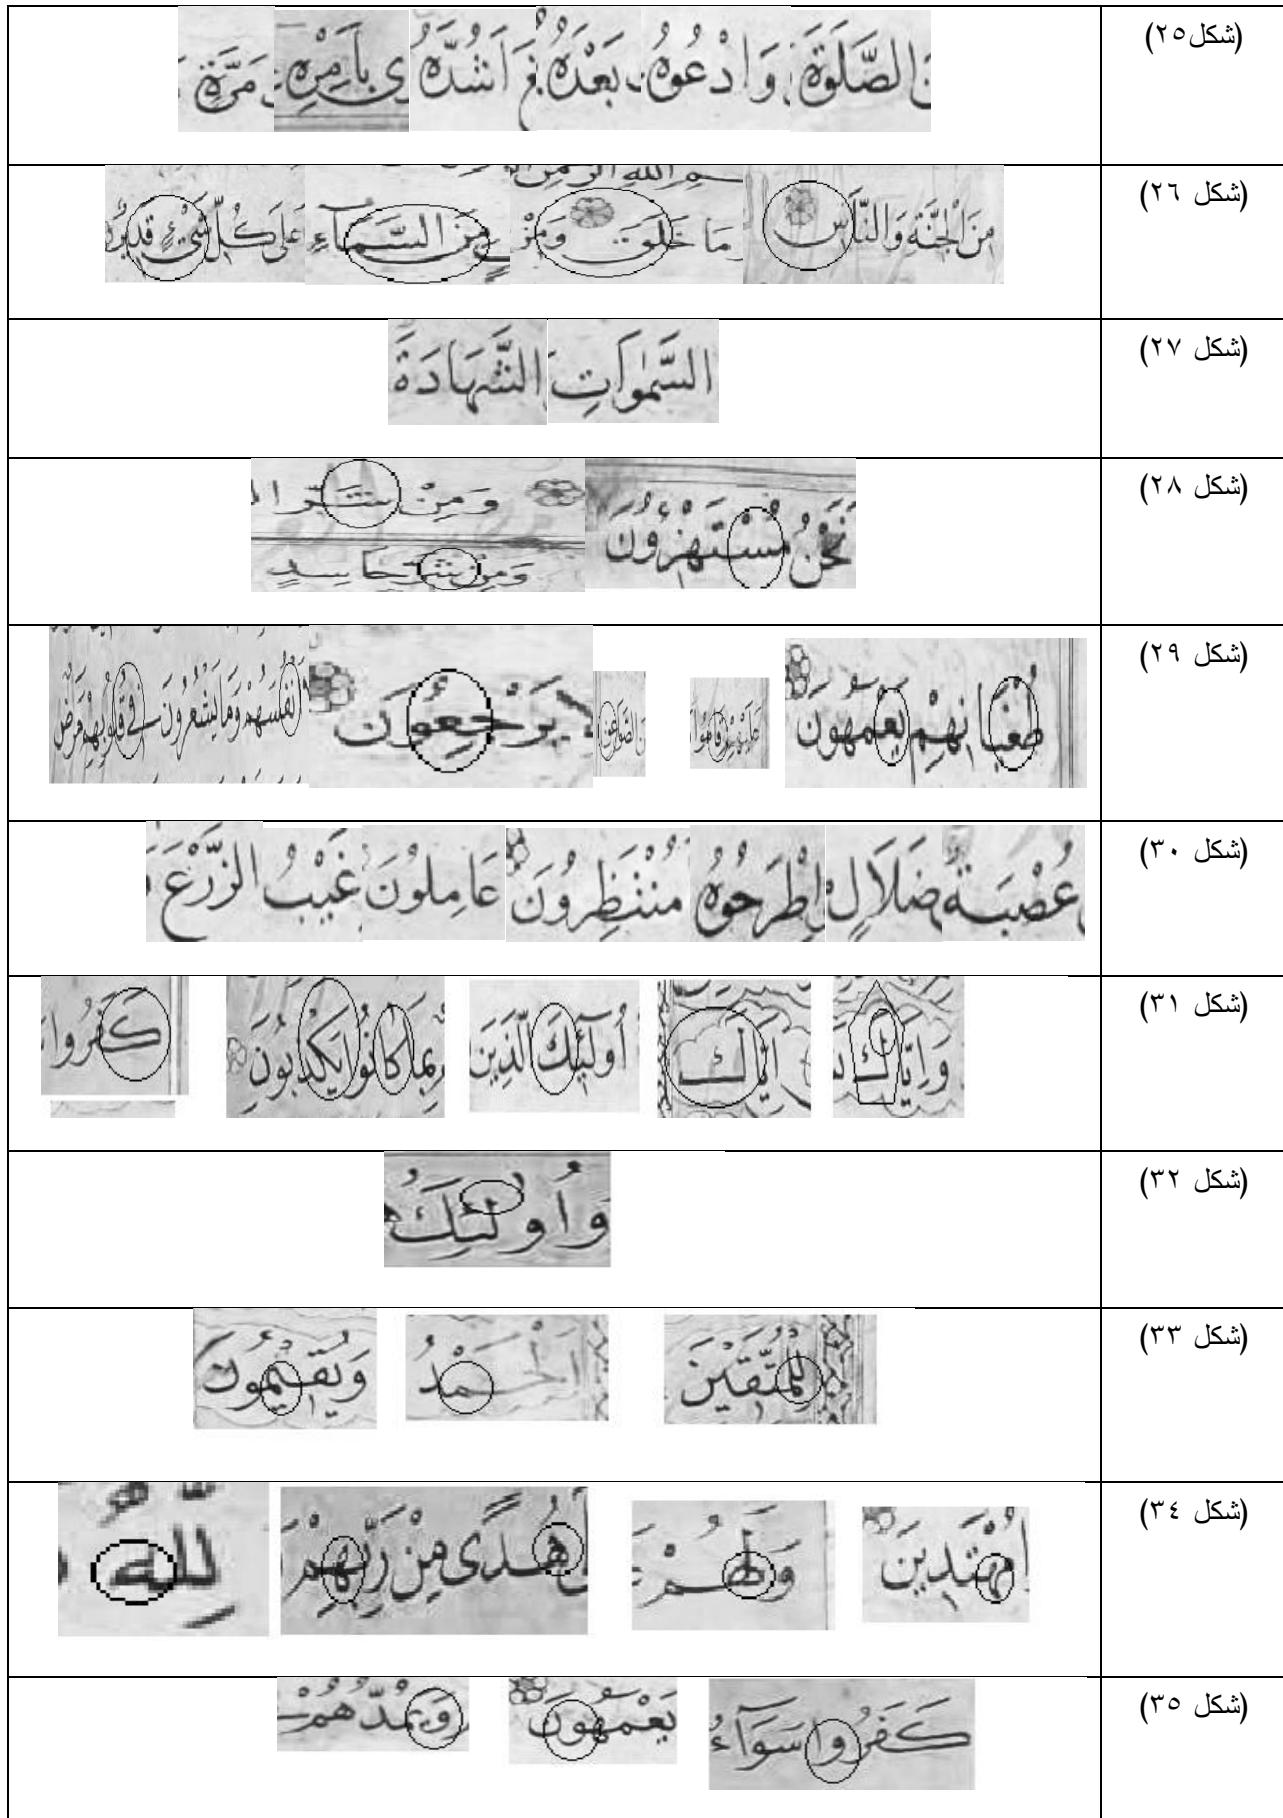 (شكل٢٥)
الصَّلَوةَ وَادْعُوهُ بَعْدَهُ اَشُدَّهُ بِاَمِرْهِ مَرَّةٍ
(شكل ٢٦)
مِنَ الْجِنَّةِ وَالنَّاسِ مَا خَلَقَ وَمِنْ مِنَ السَّمَاءِ عَلَى كُلِّ شَيْءٍ قَدِيرٌ
(شكل ٢٧)
السَّمٰوَاتِ الشَّهَادَةَ
(شكل ٢٨)
نَحْنُ مُسْتَهْزِؤُنَ وَمِنْ شَرِّ
وَمِنْ شَرِّ حَاسِدٍ
(شكل ٢٩)
طُغْيَانِهِمْ يَعْمَهُونَ عَلَيْهِمْ قَامُوا الصَّوَاعِقِ يَرْجِعُونَ اَنْفُسَهُمْ وَمَا يَشْعُرُونَ فِي قُلُوبِهِمْ مَرَضٌ
(شكل ٣٠)
عُصْبَةٌ ضَلَالٍ اِطْرَحُوهُ مُنْتَظِرُونَ عَامِلُونَ غَيْبُ الزَّرْعَ
(شكل ٣١)
وَاِيَّاكَ اِيَّاكَ اُولَٓئِكَ الَّذِينَ بِمَا كَانُوا يَكْذِبُونَ كَفَرُوا
(شكل ٣٢)
وَاُولٰئِكَ
(شكل ٣٣)
لِلْمُتَّقِينَ اَلْحَمْدُ وَيُقِيمُونَ
(شكل ٣٤)
مُهْتَدِينَ وَلَهُمْ هُدًى مِنْ رَبِّهِمْ لِلّٰهِ
(شكل ٣٥)
كَفَرُوا سَوَآءٌ يَعْمَهُونَ وَيَمُدُّهُمْ